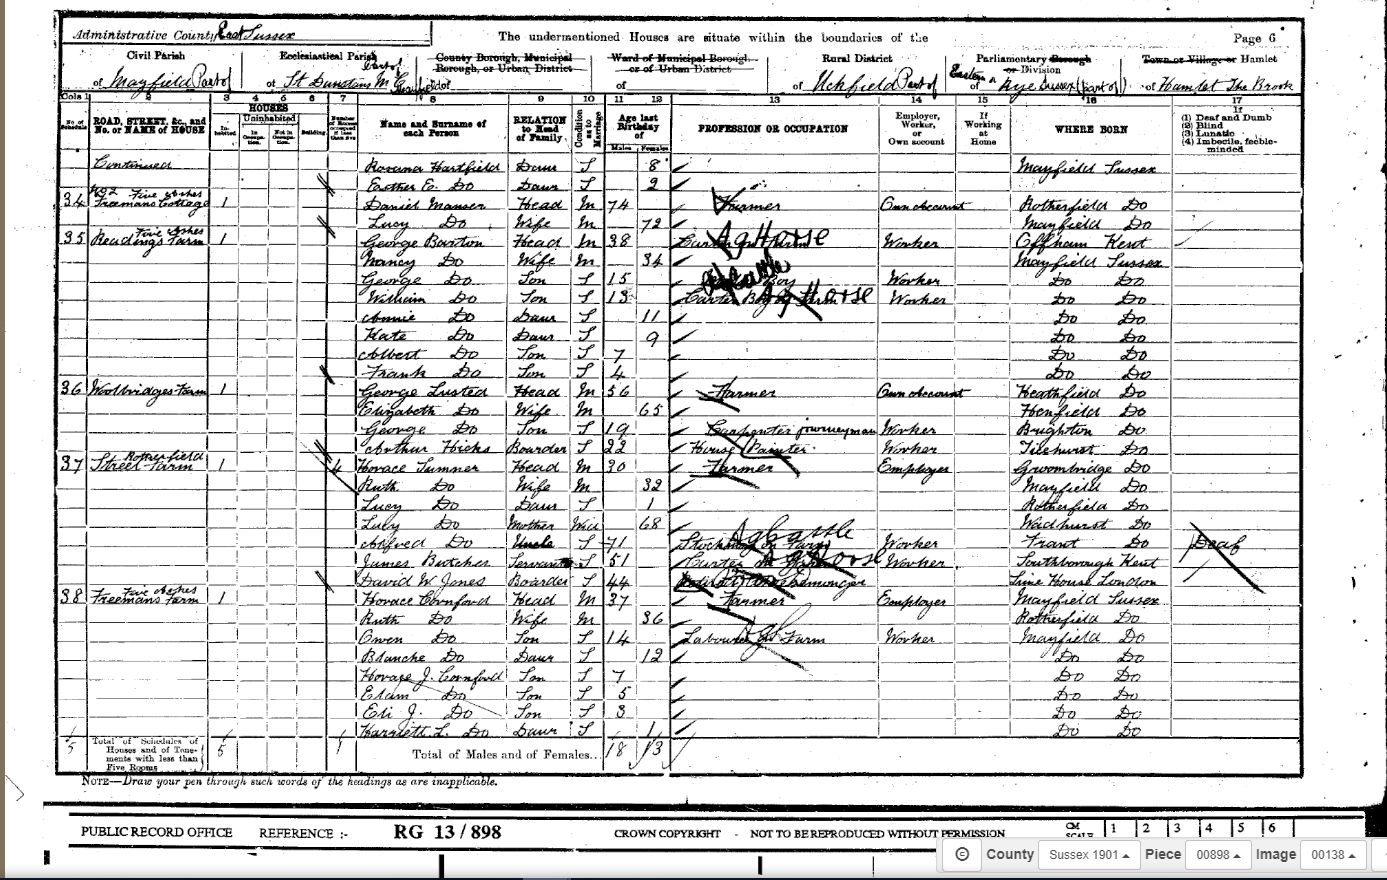 Administrative County East Sussex
The undermentioned Houses are situate within the boundaries of the
Page 6
Civil Parish
Ecclesiastical Parish
County Borough, Municipal Borough, or Urban District
Ward of Municipal Borough or of Urban District
Rural District
Parliamentary Borough or Division
Town or Village or Hamlet
of Mayfield Part of
of Part of St Dunstans Mayfield
of
of
of Uckfield Part of
of Eastern Sussex (part of)
of Hamlet The Brook
Cols 1 2 3 4 5 6 7 8 9 10 11 12 13 14 15 16 17
No. of Schedule
ROAD, STREET, &c., and No. or NAME of HOUSE
HOUSES
Inhabited
Uninhabited
In Occupation.
Not in Occupation.
Building
Number of Rooms occupied if less than five
Name and Surname of each Person
RELATION to Head of Family
Condition as to Marriage
Age last Birthday of
Males Females
PROFESSION OR OCCUPATION
Employer, Worker, or Own account
If Working at Home
WHERE BORN
If
(1) Deaf and Dumb
(2) Blind
(3) Lunatic
(4) Imbecile, feeble-minded
Continued Rosanna Hartfield Daur S 8 Mayfield Sussex
Esther E. Do Daur S 2
34 No 2 Five Ashes Freemans Cottage 1 Daniel Manser Head M 74 Farmer Own account Rotherfield Do
Lucy Do Wife M 72 Mayfield Do
35 Five Ashes Readings Farm 1 George Barton Head M 38 Carter on Farm Ag Horse Worker Offham Kent
Nancy Do Wife M 34 Mayfield Sussex
George Do Son S 15 Boy Ag Cattle Worker Do Do
William Do Son S 13 Carter Boy on Farm Ag Horse Worker Do Do
Annie Do Daur S 11 Do Do
Kate Do Daur S 9 Do Do
Albert Do Son S 7 Do Do
Frank Do Son S 4 Do Do
36 Woolbridges Farm 1 George Lusted Head M 56 Farmer Own account Heathfield Do
Elizabeth Do Wife M 65 Henfield Do
George Do Son S 19 Carpenter journeyman Worker Brighton Do
Arthur Hicks Boarder S 22 House Painter Worker Ticehurst Do
37 Rotherfield Street Farm 1 4 Horace Sumner Head M 30 Farmer Employer Groombridge Do
Ruth Do Wife M 32 Mayfield Do
Lucy Do Daur S 1 Rotherfield Do
Lucy Do Mother Wid 68 Wadhurst Do
Alfred Do Uncle S 71 Stockman on Farm Ag Cattle Worker Frant Do Deaf
James Butcher Servant S 51 Carter on Farm Ag Horse Worker Southborough Kent
David W. Jones Boarder S 44 Lime House London
38 Five Ashes Freemans Farm 1 Horace Cornford Head M 37 Farmer Employer Mayfield Sussex
Ruth Do Wife M 36 Rotherfield Do
Owen Do Son S 14 Labourer on Farm Ag Worker Mayfield Do
Blanche Do Daur S 12 Do Do
Horace J. Cornford Son S 7 Do Do
Elam Do Son S 5 Do Do
Eli J. Do Son S 3 Do Do
Harriett L. Do Daur S 1 Do Do
5 Total of Schedules of Houses and of Tenements with less than Five Rooms 5 1 Total of Males and of Females... 18 13
NOTE—Draw your pen through such words of the headings as are inapplicable.
PUBLIC RECORD OFFICE REFERENCE :- RG 13 / 898 CROWN COPYRIGHT - NOT TO BE REPRODUCED WITHOUT PERMISSION CM SCALE 1 2 3 4 5 6
© County Sussex 1901 Piece 00898 Image 00138